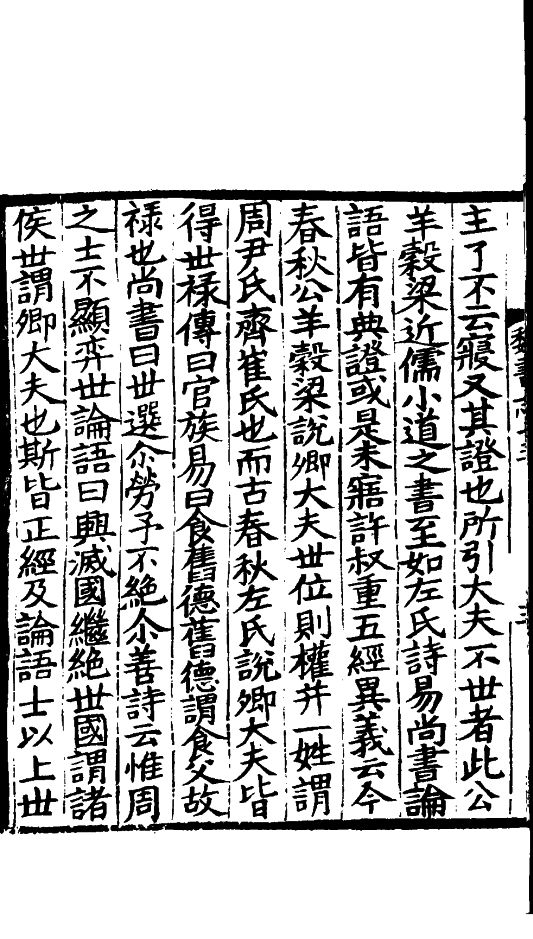 主了不云寢又其證也所引大夫不世者此公
羊穀梁近儒小道之書至如左氏詩易尚書論
語皆有典證或是未寤許叔重五經異義云今
春秋公羊穀梁說卿大夫世位則權并一姓謂
周尹氏齊崔氏也而古春秋左氏說卿大夫皆
得世祿傳曰官族易曰食舊德舊德謂食父故
祿也尚書曰世選尒勞予不絕尒善詩云惟周
之士不顯弈世論語曰興滅國繼絕世國謂諸
侯世謂卿大夫也斯皆正經及論語士以上世